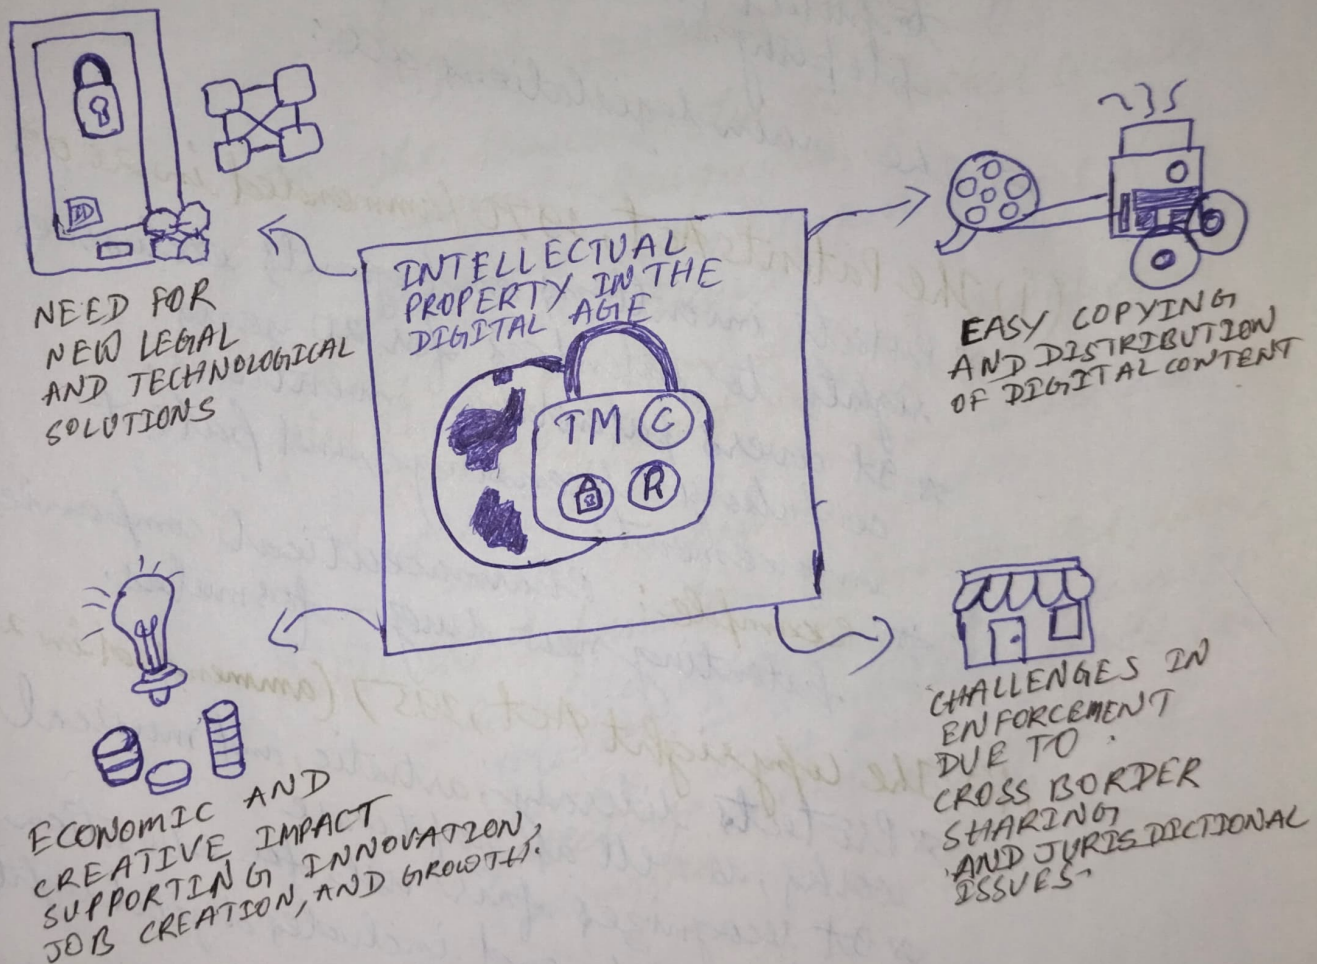 INTELLECTUAL
PROPERTY IN THE
DIGITAL AGE
TM C
R
NEED FOR
NEW LEGAL
AND TECHNOLOGICAL
SOLUTIONS
EASY COPYING
AND DISTRIBUTION
OF DIGITAL CONTENT
ECONOMIC AND
CREATIVE IMPACT
SUPPORTING INNOVATION,
JOB CREATION, AND GROWTH.
CHALLENGES IN
ENFORCEMENT
DUE TO
CROSS BORDER
SHARING
AND JURISDICTIONAL
ISSUES.